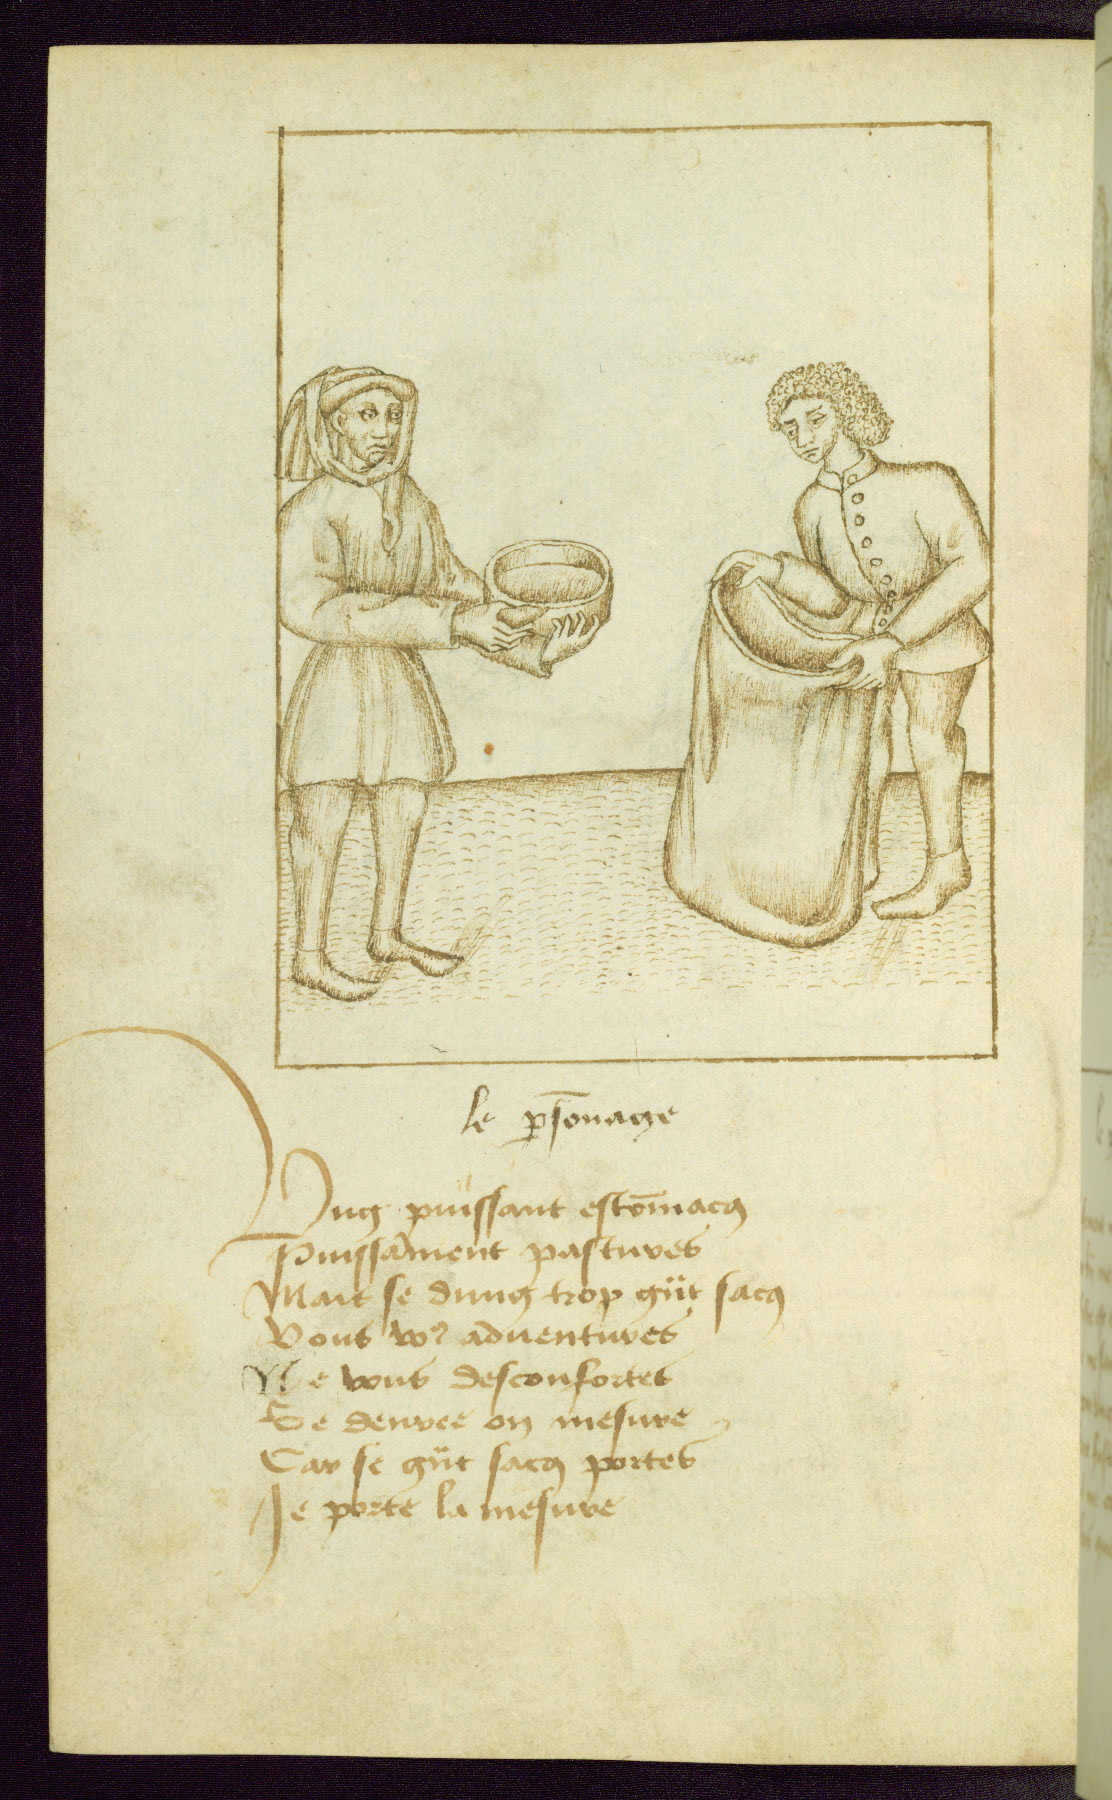 le psonage
Vng puissant estomacq
Puissament pastures
Mais se dung trop gñt sacq
Vous vo9 aduentures
Ne vous desconfortes
Se denree on mesure
Car se gñt sacq portes
Je porte la mesure